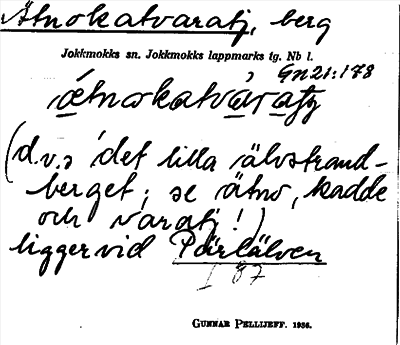 Ätnokatvaratj, berg
Jokkmokks sn. Jokkmokks lappmarks tg. Nb l.
Gn 21:178
ätnokatvāratj
(d.v.s det lilla älvstrand-
berget; se ätno, kadde
och varatj!)
ligger vid Pärlälven
I 87
GUNNAR PELLIJEFF. 1936.